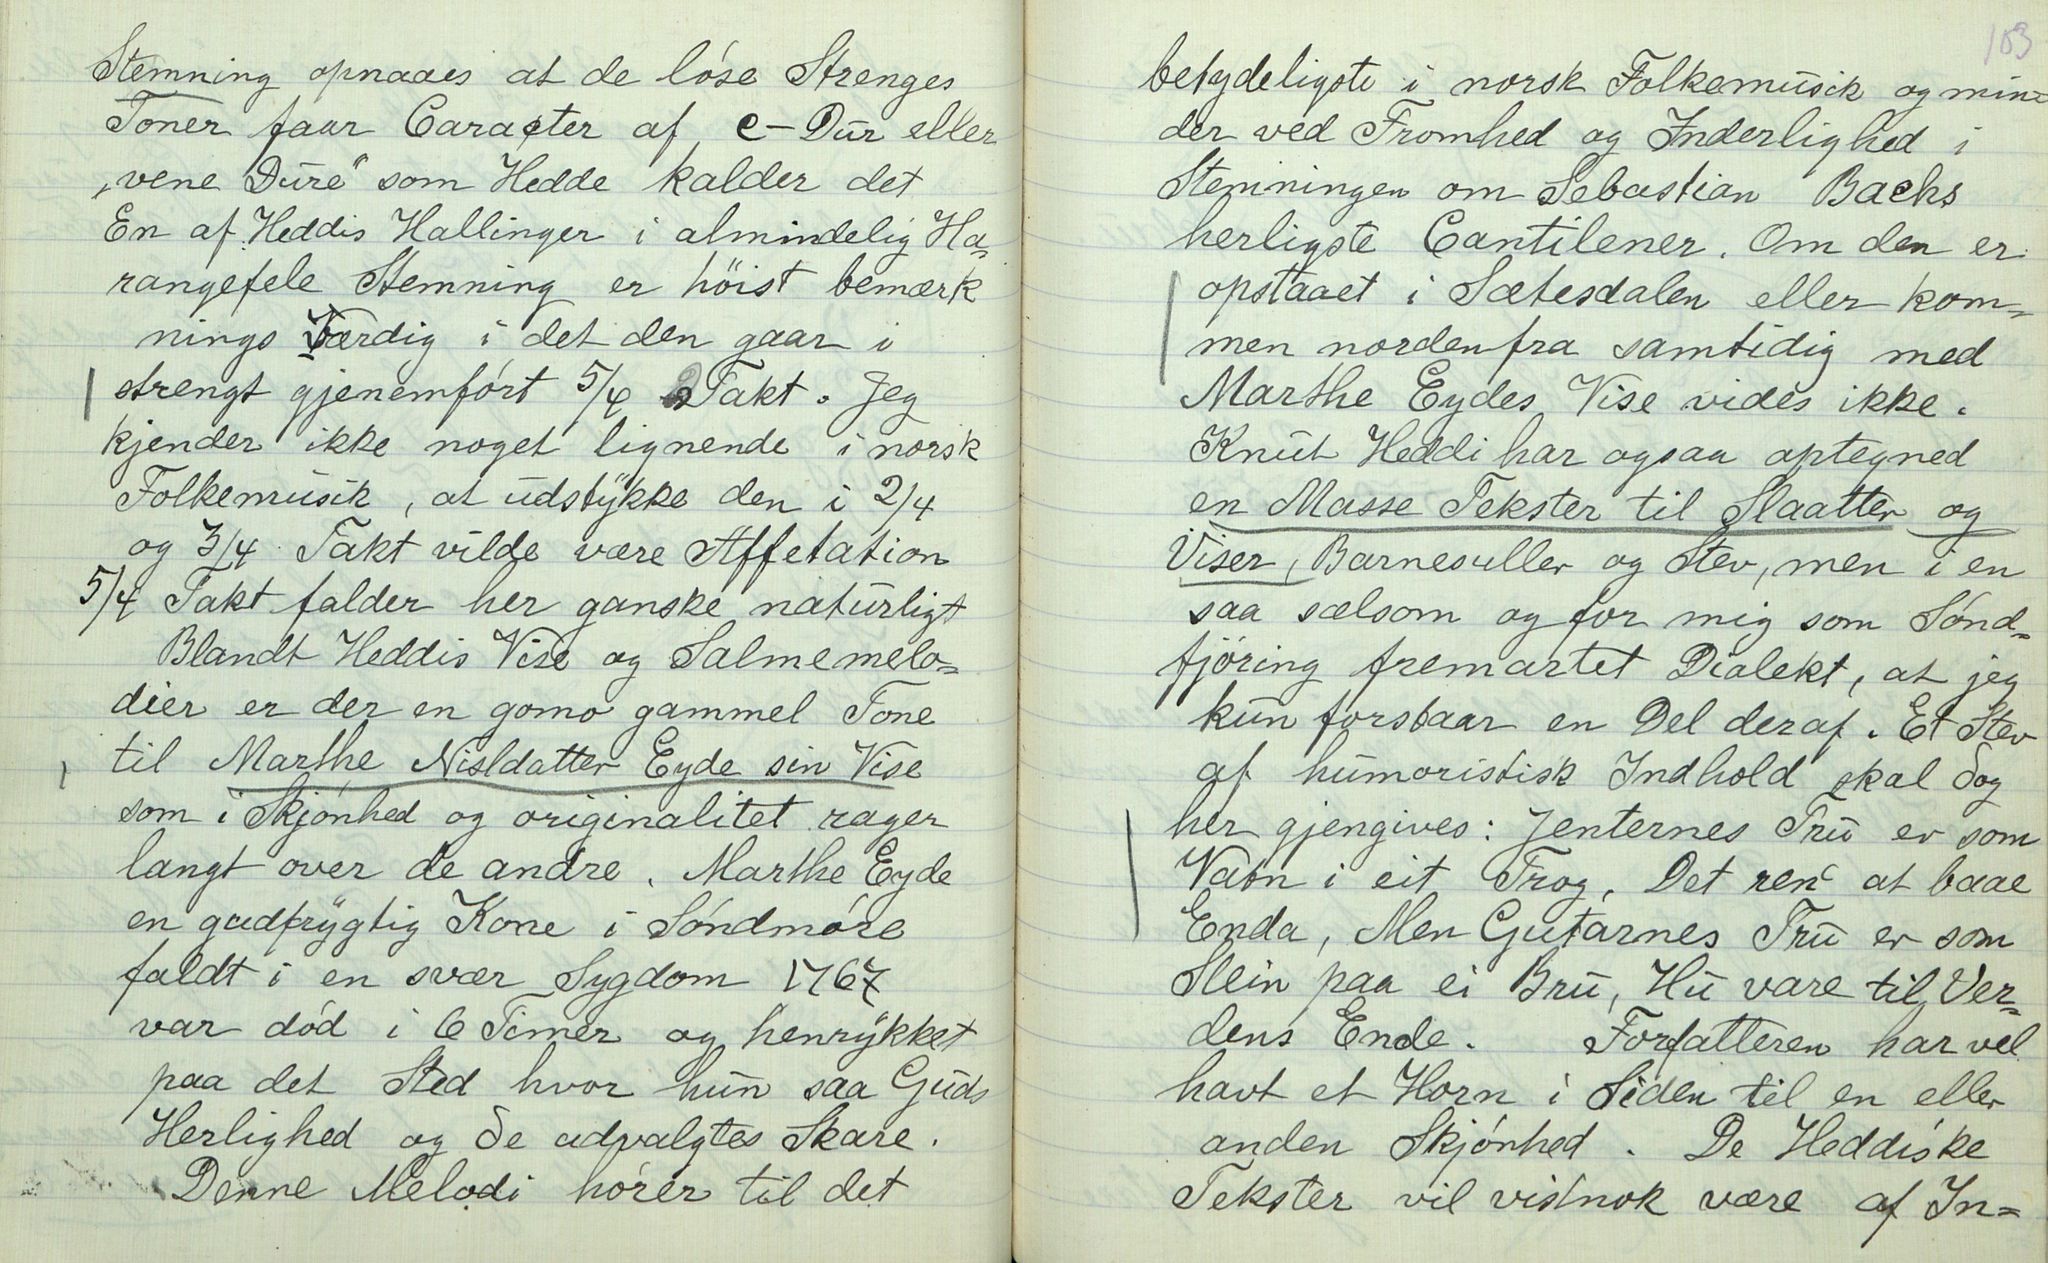 Stemning opnaaes at de löse Strenges
Toner faar Caracter af c-Dur eller
„vene Dure" som Hedde kalder det
En af Heddis Hallinger i almindelig Ha-
rangefele Stemning er höist bemærk
nings Værdig i det den gaar i
strengt gjenemført 5/4 Takt. Jeg
kjender ikke noget lignende i norsk
Folkemusik, at udstykke den i 2/4
og 3/4 Takt vilde være Affetation
5/4 Takt falder her ganske naturligt
Blandt Heddis Vise og Salmemelo=
dier er der en gomo gammel Tone
til Marthe Nisldatter Eyde sin Vise
som i Skjønhed og originalitet rager
langt over de andre. Marthe Eyde
en gudfrygtig Kone i Söndmöre
faldt i en svær Sygdom 1767
var död i 6 Timer og henrykket
paa det Sted hvor hun saa Guds
Herlighed og de udvalgtes Skare.
Denne Melodi hörer til det
103
betydeligste i norsk Folkemusik og min=
der ved Fromhed og Inderlighed i
Stemningen om Sebastian Bachs
herligste Cantilener. Om den er
opstaaet i Sætesdalen eller kom=
men nordenfra samtidig med
Marthe Eydes Vise vides ikke.
Knut Heddi har ogsaa optegned
en Masse Tekster til Slaatter og
Viser, Barnesuller og Stev, men i en
saa sælsom og for mig som Sönd=
fjöring fremartet Dialekt, at jeg
kun forstaar en Del deraf. Et Stev
af humoristisk Indhold skal dog
her gjengives: Jenternes Tru er som
Vatn i eit Trog, Det ren at baae
Enda, Men Gutarnes Tru er som
Stein paa ei Bru, Hu vare til Ver=
dens Ende. Forfatteren har vel
havt et Horn i Siden til en eller
anden Skjönhed. De Heddiske
Tekster vil vistnok være af In=